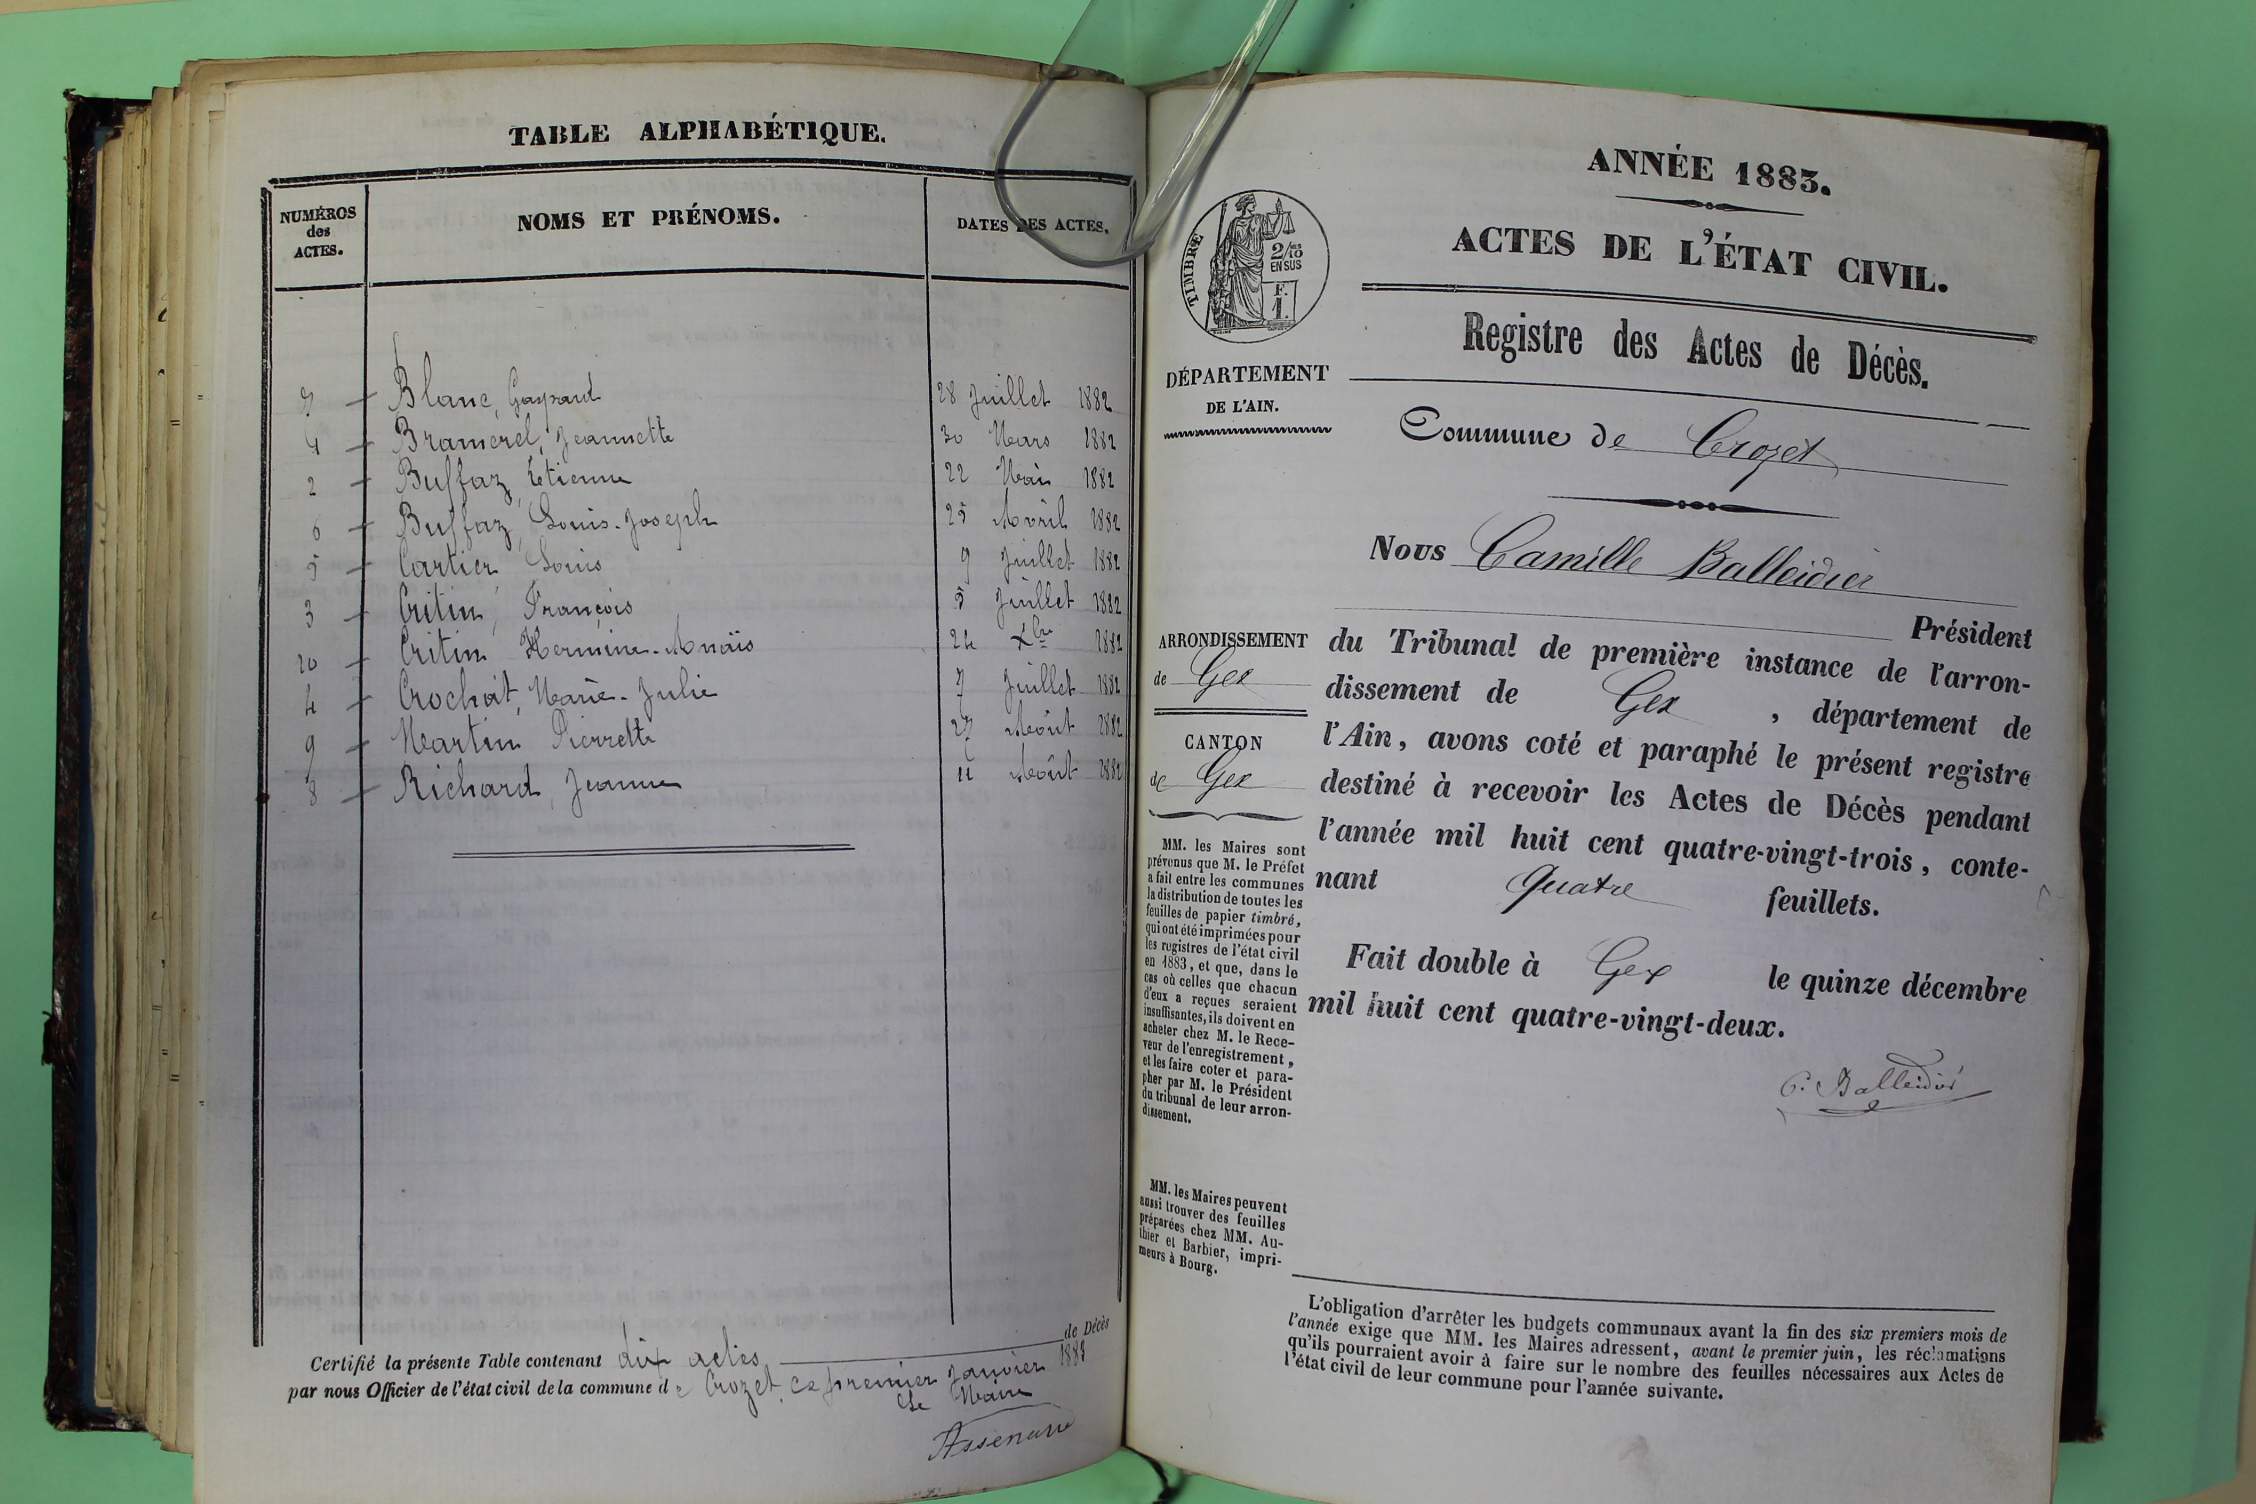 TABLE ALPHABÉTIQUE.
NUMÉROS des ACTES.
NOMS ET PRÉNOMS.
DATES DES ACTES.
7 — Blanc, Gaspard 28 Juillet 1882
— Bramerel, Jeannette 30 Mars 1882
2 — Buffaz, Etienne 22 1882
6 — Buffaz, Louis-Joseph 25 Avril 1882
5 — Cartier Louis 9 Juillet 1882
3 — Critin, François 5 Juillet 1882
10 — Critin Hermine-Anaïs 24 Xbre 1882
4 — Crochat, Marie-Julie 7 Juillet 1882
9 — Martin Pierrette 27 Août 1882
8 — Richard, Jeanne 11 Août 1882
Certifié la présente Table contenant dix actes de Décès
par nous Officier de l'état civil de la commune de Crozet, ce premier Janvier 1883
Le Maire
ANNÉE 1883.
ACTES DE L'ÉTAT CIVIL.
TIMBRE
2/10 EN SUS
F. 1.
Registre des Actes de Décès.
DÉPARTEMENT
DE L'AIN.
Commune de Crozet
Nous Camille Balleidier
Président
du Tribunal de première instance de l'arron-
dissement de Gex, département de
l'Ain, avons coté et paraphé le présent registre
destiné à recevoir les Actes de Décès pendant
l'année mil huit cent quatre-vingt-trois, conte-
nant Quatre feuillets.
Fait double à Gex le quinze décembre
mil huit cent quatre-vingt-deux.
C. Balleidier
ARRONDISSEMENT
de Gex
CANTON
de Gex
MM. les Maires sont
prévenus que M. le Préfet
a fait entre les communes
la distribution de toutes les
feuilles de papier timbré,
qui ont été imprimées pour
les registres de l'état civil
en 1883, et que, dans le
cas où celles que chacun
d'eux a reçues seraient
insuffisantes, ils doivent en
acheter chez M. le Rece-
veur de l'enregistrement,
et les faire coter et para-
pher par M. le Président
du tribunal de leur arron-
dissement.
MM. les Maires peuvent
aussi trouver des feuilles
préparées chez MM. Au-
thier et Barbier, impri-
meurs à Bourg.
L'obligation d'arrêter les budgets communaux avant la fin des six premiers mois de
l'année exige que MM. les Maires adressent, avant le premier juin, les réclamations
qu'ils pourraient avoir à faire sur le nombre des feuilles nécessaires aux Actes de
l'état civil de leur commune pour l'année suivante.